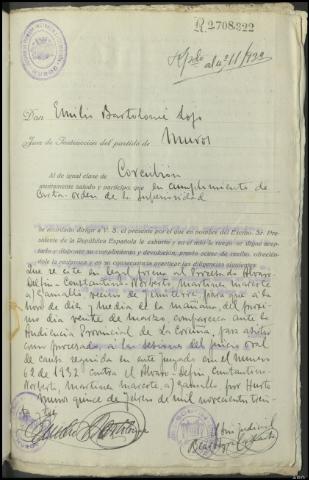 R.2708322
Rpdo al nº 11/932
Don Emilio Bartolomé
Juez de Instrucción del partido de Muros
Al de igual clase de Corcubión
atentamente saludo y participo que en cumplimiento de
Carta-orden de la Superioridad
he acordado dirigir a V. S. el presente por el que en nombre del Excmo. Sr. Pre-
sidente de la República Española le exhorto y en el mío le ruego se digne acep-
tarlo y disponer su cumplimiento y devolución, previo acuse de recibo, ofrecién-
dole la recíproca y en su consecuencia practicar las diligencias siguientes
Que se cite en legal forma al procesado Alvaro
Delfin-Constantino-Norberto Martinez Marcote
a) Gamallo vecino de para que a la
hora de diez y media de la mañana, del próxi-
mo dia veinte de marzo, comparezca ante la
Audiencia Provincial de La Coruña, para asistir
como procesado, a las sesiones del juicio oral
de causa seguida en este Juzgado con el número
62 de 1932 contra el Alvaro-Delfin Constantino-
Norberto, Martinez Marcote, a) Gamallo por Hurto
Muros quince de de mil novecientos trein-
El judicial